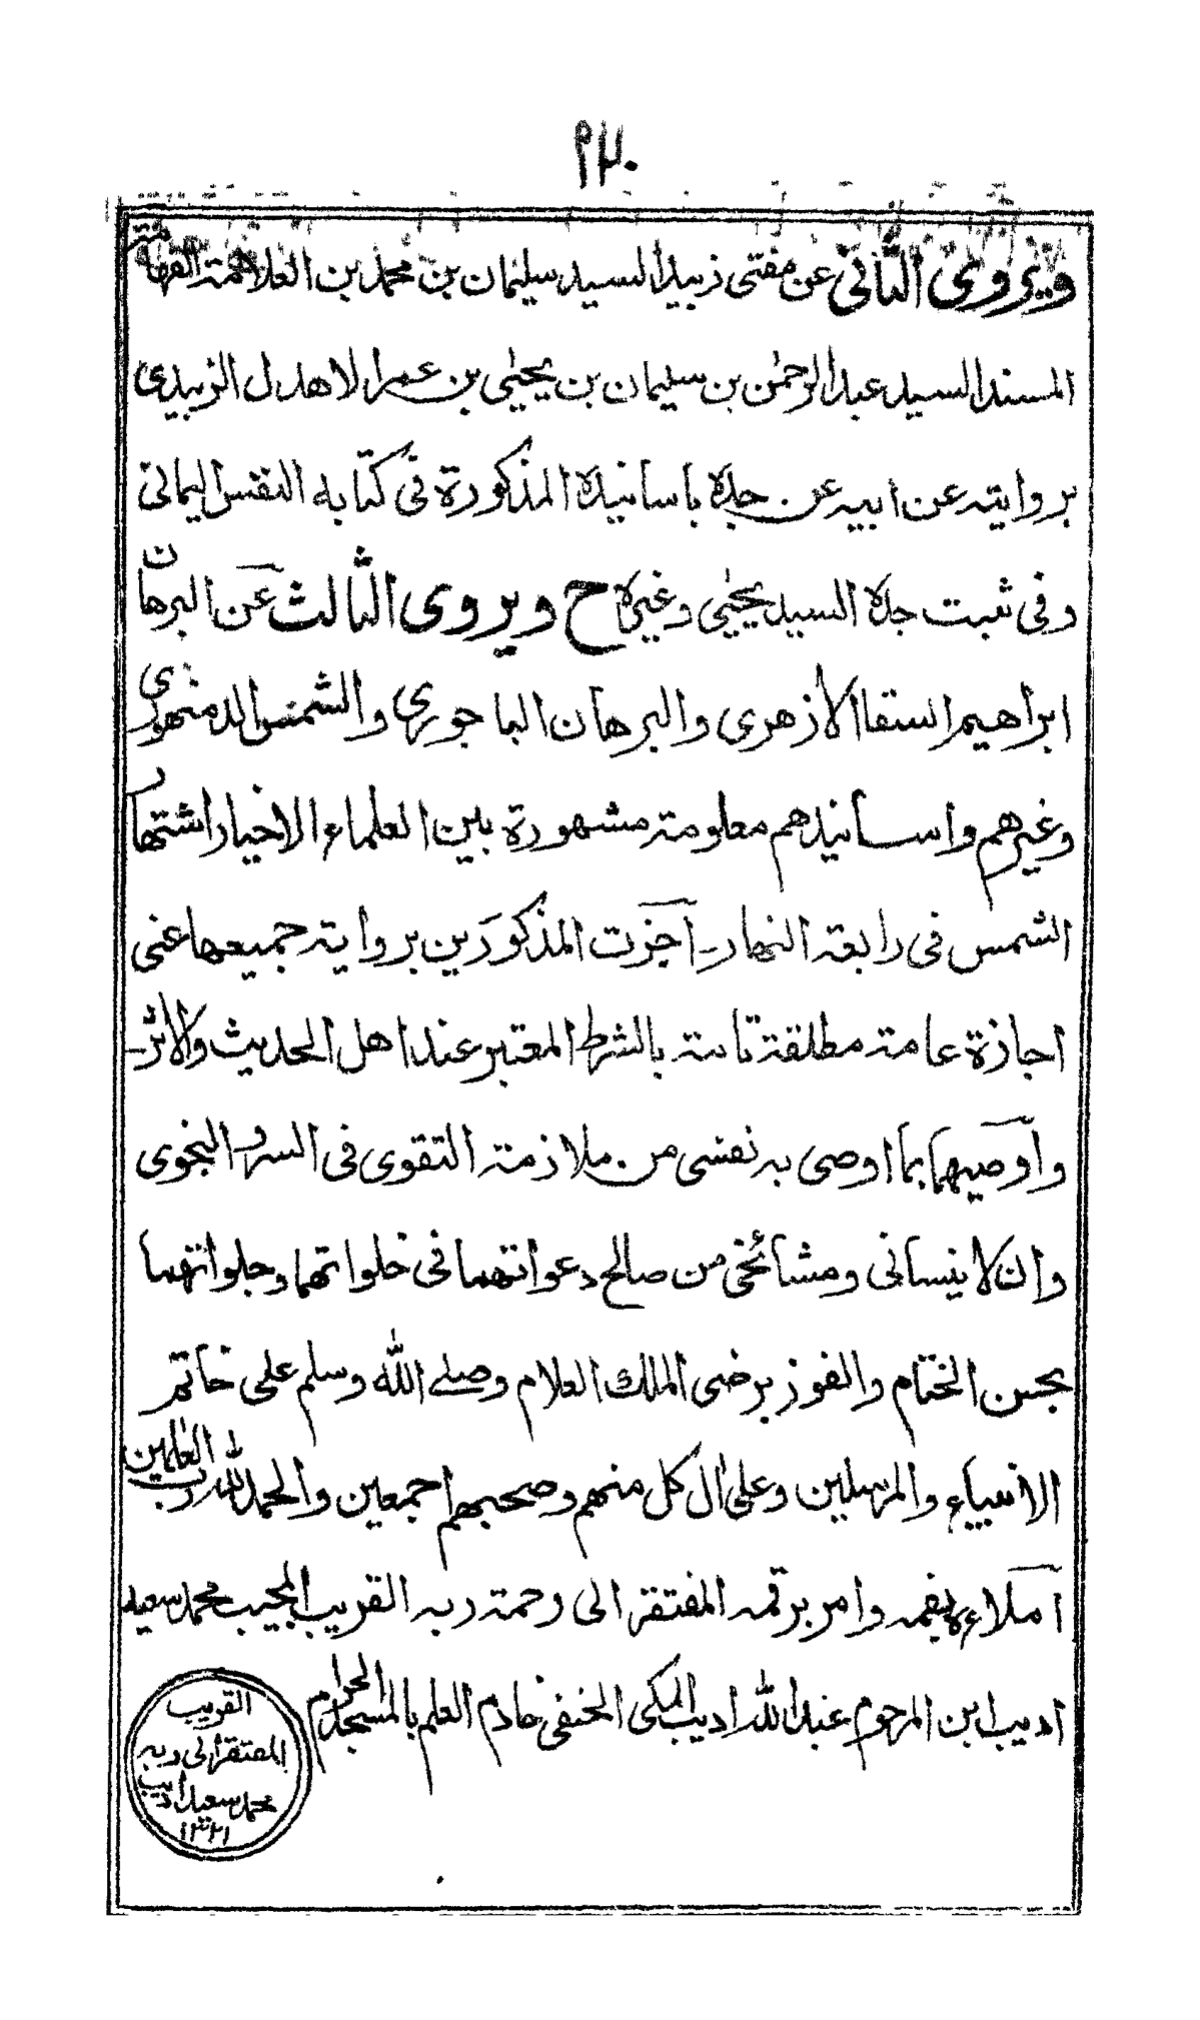 ٩٢٠
ويروى الثانى عن مفتى زبيد السيد سليمان بن محمد بن العلامة الفهامة
المسند السيد عبدالرحمٰن بن سليمان بن يحيٰى بن عمر الاهدل الزبيدى
بروايته عن ابيه عن جده باسانيده المذكورة فى كتابه النفس اليمانى
وفى ثبت جده السيد يحيٰى وغيره ح ويروى الثالث عن البرهان
ابراهيم السقا الأزهرى والبرهان الباجورى والشمس الدمنهورى
وغيرهم واسانيدهم معلومة مشهورة بين العلماء الاخيار اشتهار
الشمس فى رابعة النهار ـ آجزت المذكورَين برواية جميعها عنى
اجازة عامة مطلقة تامة بالشرط المعتبر عند اهل الحديث والاثر ـ
وآوصيهما بما اوصى به نفسى من ملازمة التقوى فى السر والنجوى
وان لا ينسانى ومشائخى من صالح دعواتهما فى خلواتهما وجلواتهما
بحسن الختام والفوز برضى الملك العلام وصلے الله وسلم على خاتم
الانبياء والمرسلين وعلى اٰل كل منهم وصحبهم اجمعين والحمد لله رب العٰلمين
آملاءه بفمه وامر برقمه المفتقر الى رحمة ربه القريب المجيب محمد سعيد
اديب ابن المرحوم عبدالله اديب المكى الحنفى خادم العلم بالمسجد الحرام
القريب
المفتقر الى ربه
محمد سعيد اديب
١٣٢١